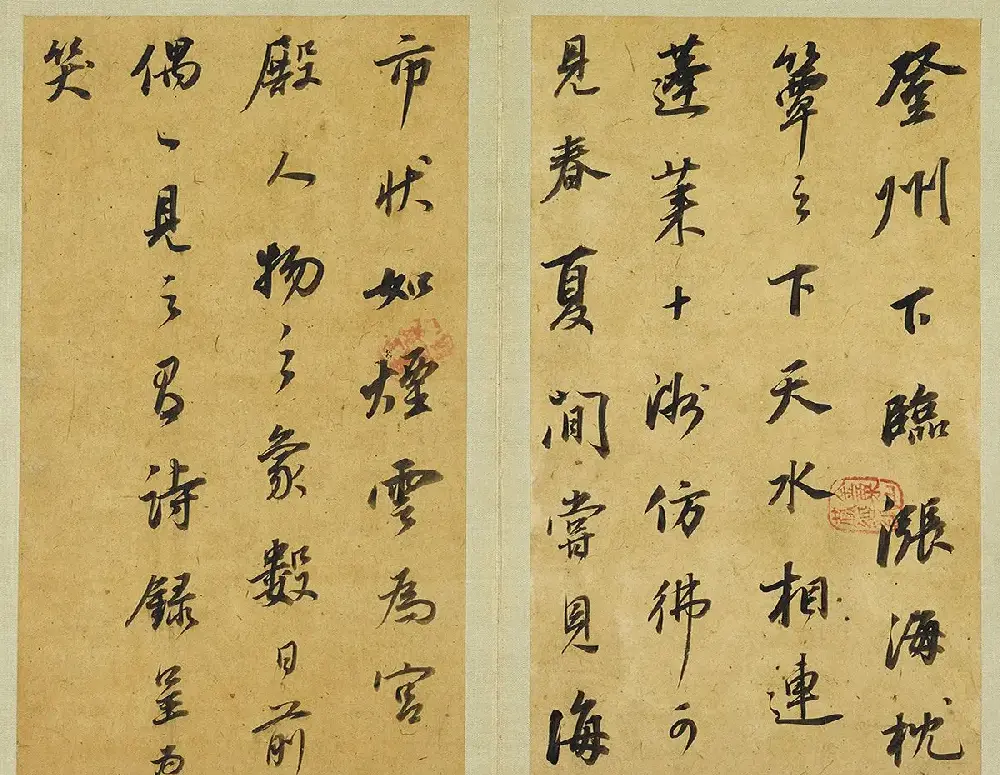 登州下臨漲海枕
簟之下天水相連
蓬莱十洲仿彿可
見春夏間嘗見海
市状如煙雲為宮
殿人物之象數日前
偶一見之有詩錄呈為
笑